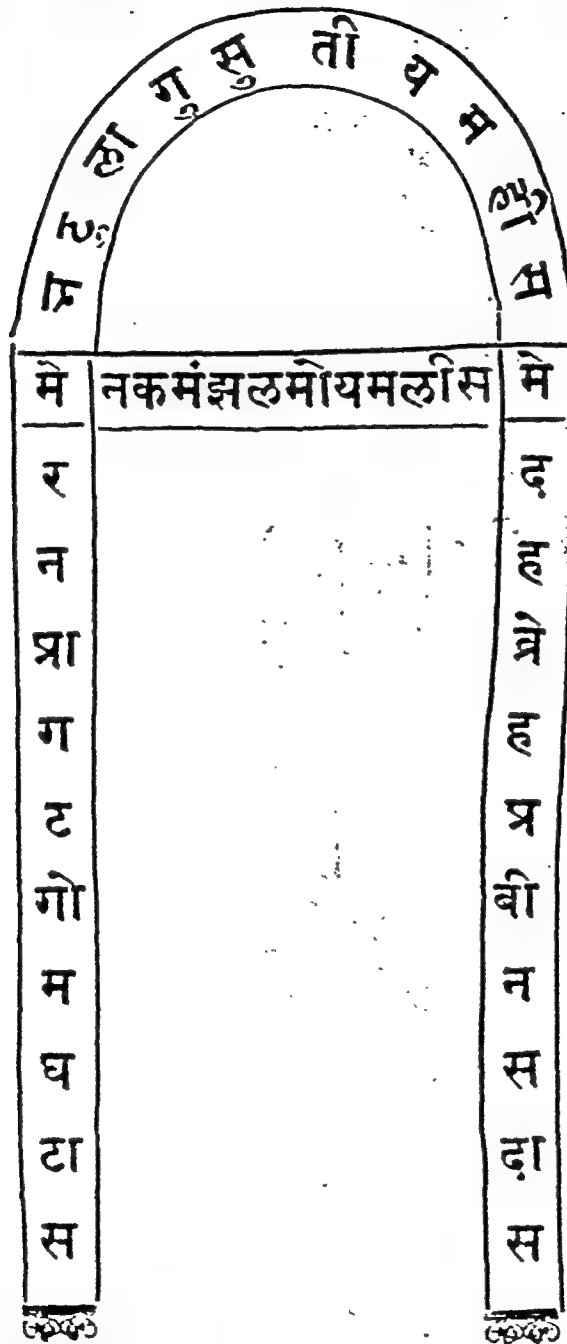 ला गु सु ती य म ही स
मे नकमंझलमोयमलीस मे
न प्रा ग ट गो म घ टा स
द ह ह प्र बी न स ढ़ा स